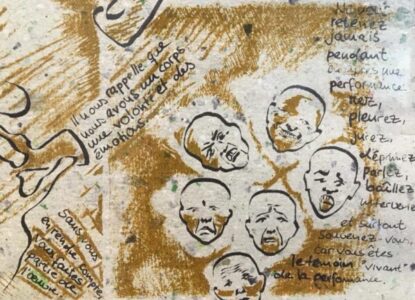 Il nous rappelle que
nous avons un corps
une volonté et des
émotions
Sans vous
en rendre compte
vous faites
partie de
l'oeuvre
Ne vous
retenez
jamais
pendant
une
performance
riez,
pleurez,
jurez,
parlez,
baillez
intervenez
et surtout
souvenez-vous
car vous êtes
le témoin vivant
de la performance.